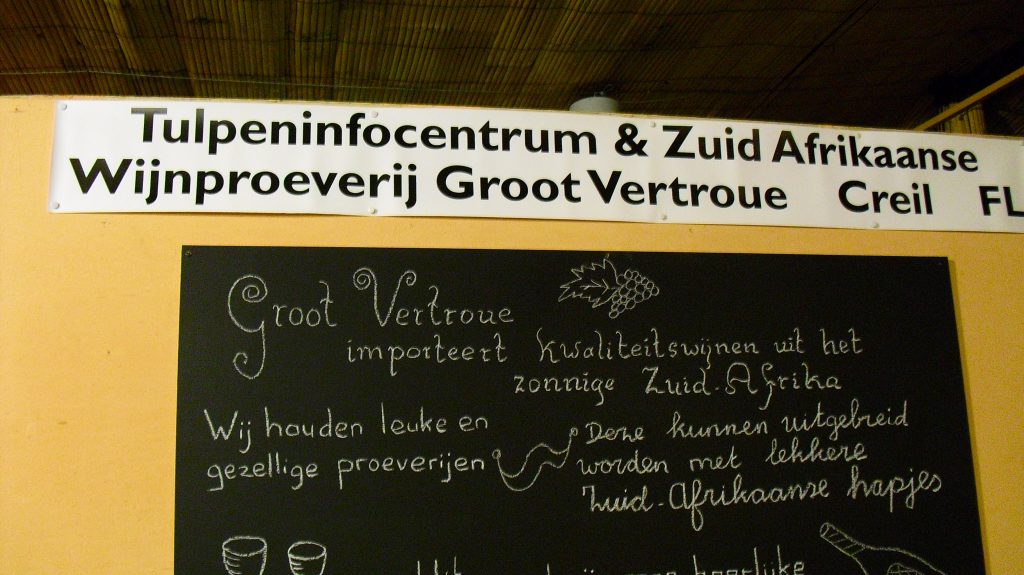 Tulpeninfocentrum & Zuid Afrikaanse
Wijnproeverij Groot Vertroue Creil FL
Groot Vertroue
importeert kwaliteitswijnen uit het
zonnige Zuid-Afrika
Wij houden leuke en
gezellige proeverijen
Deze kunnen uitgebreid
worden met lekkere
Zuid-Afrikaanse hapjes
heerlijke